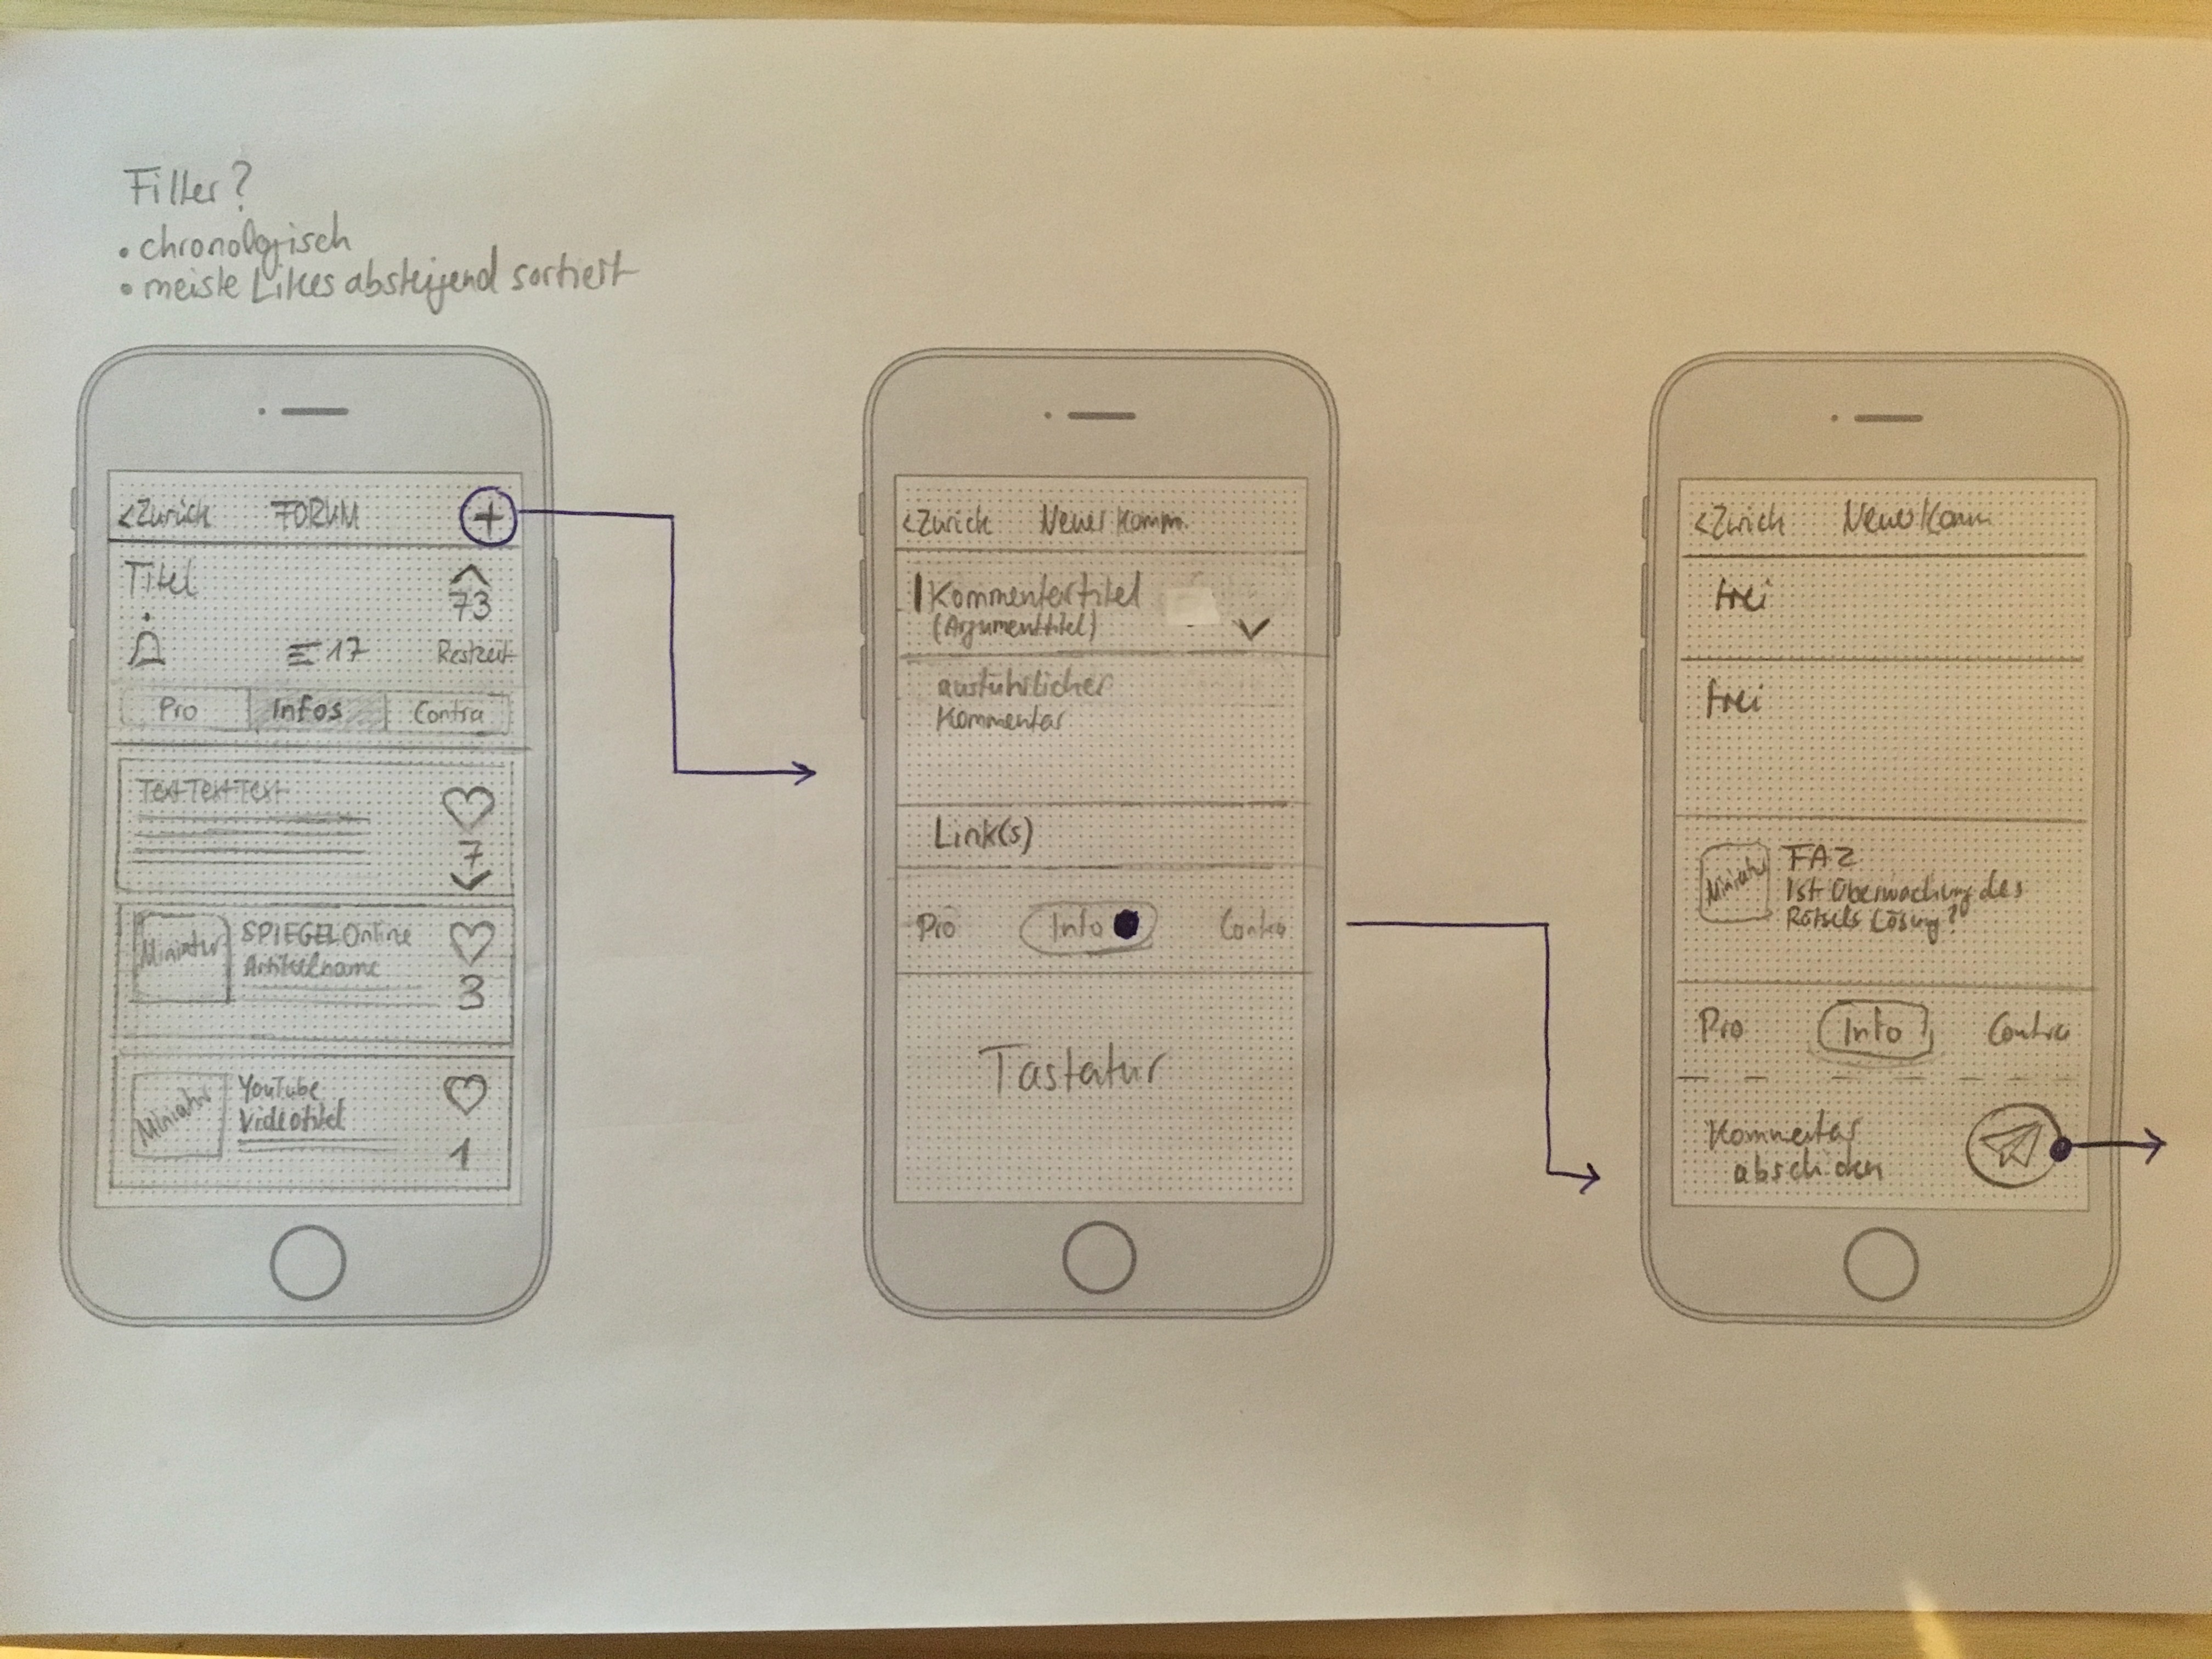 Filter?
• chronologisch
• meiste Likes absteigend sortiert
<Zurück FORUM +
Titel
73
17 Restzeit
Pro Infos Contra
Text Text Text
7
Miniatur SPIEGEL Online
Artikelname
3
Miniatur YouTube
Videotitel
1
<Zurück Neuer Komm.
Kommentartitel
(Argumenttitel)
ausführlicher
Kommentar
Link(s)
Pro Info Contra
Tastatur
<Zurück Neuer Komm.
frei
frei
Miniatur FAZ
Ist Überwachung des
Rätsels Lösung?
Pro Info Contra
Kommentar
abschicken